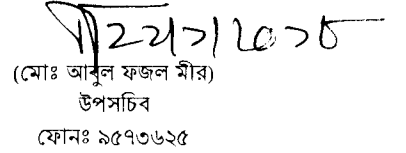 (মোঃ আবুল ফজল মীর)
উপসচিব
ফোনঃ ৯৫৭৩৬২৫